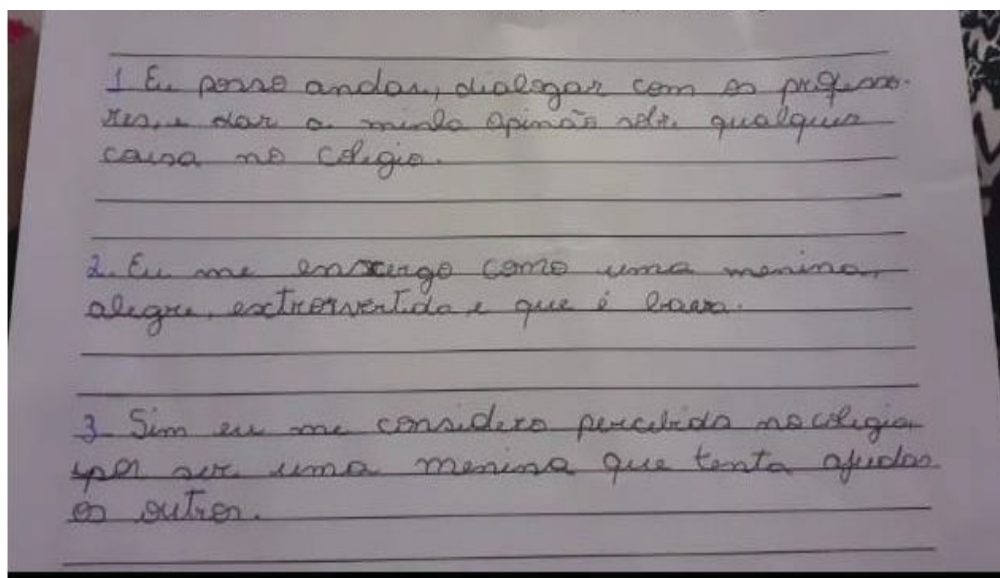 1 Eu posso andar, dialogar com os professo-
res, e dar a minha opinião sobre qualquer
coisa no colégio.
2. Eu me enxergo como uma menina,
alegre, extrovertida e que é
3 Sim eu me considero percebida no colégio,
por ser uma menina que tenta ajudar
os outros.